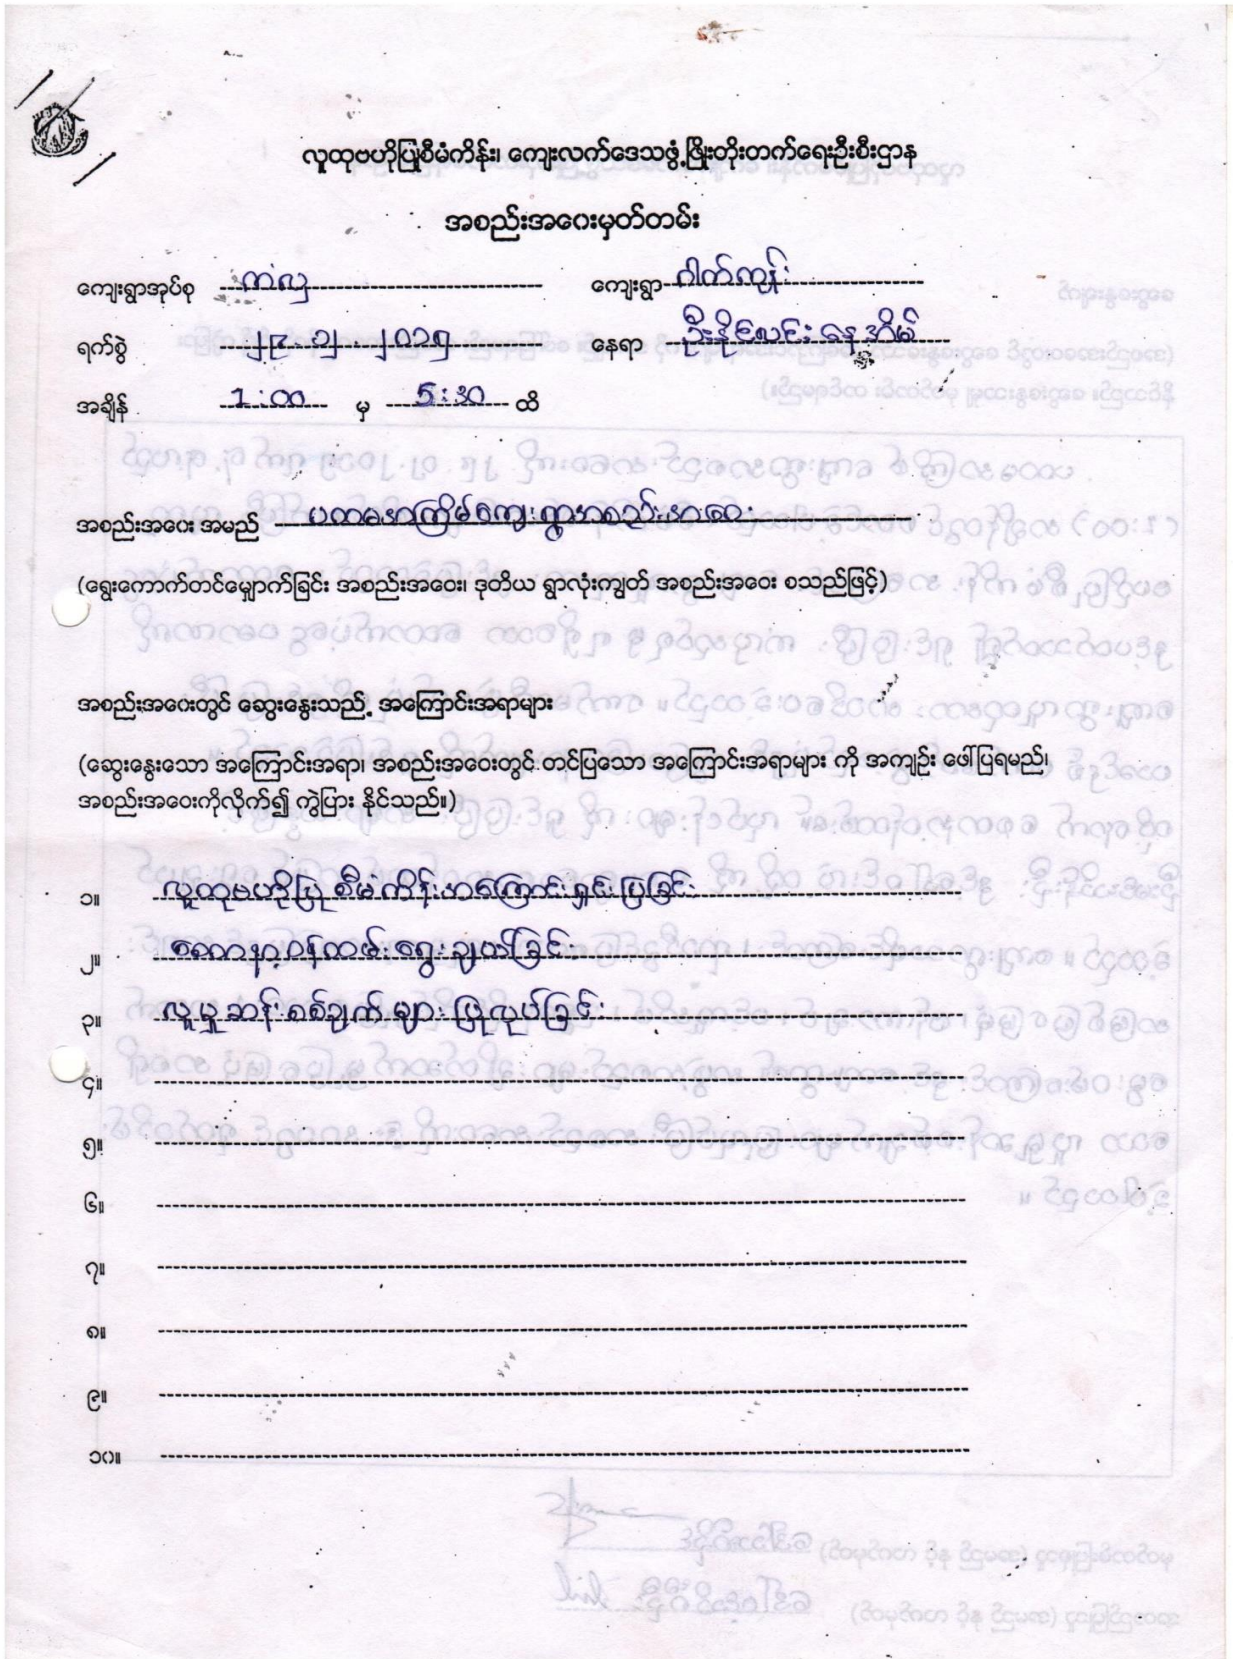 လူထုဗဟိုပြုစီမံကိန်း၊ ကျေးလက်ဒေသဖွံ့ဖြိုးတိုးတက်ရေးဦးစီးဌာန
အစည်းအဝေးမှတ်တမ်း
ကျေးရွာအုပ်စု ကလှ ကျေးရွာ ဂါတ်ကုန်း
ရက်စွဲ နေရာ ဦးနိုင်လင်း နေအိမ်
အချိန် 1:00 မှ 5:30 ထိ
အစည်းအဝေး အမည် ပထမအကြိမ်ကျေးရွာအစည်းအဝေး
(ရွေးကောက်တင်မြှောက်ခြင်း အစည်းအဝေး၊ ဒုတိယ ရွာလုံးကျွတ် အစည်းအဝေး စသည်ဖြင့်)
အစည်းအဝေးတွင် ဆွေးနွေးသည့် အကြောင်းအရာများ
(ဆွေးနွေးသော အကြောင်းအရာ၊ အစည်းအဝေးတွင် တင်ပြသော အကြောင်းအရာများ ကို အကျဉ်း ဖေါ်ပြရမည်၊
အစည်းအဝေးကိုလိုက်၍ ကွဲပြား နိုင်သည်။)
၁။ လူထုဗဟိုပြု စီမံကိန်းအကြောင်းရှင်းပြခြင်း
၂။ စေတနာ့ဝန်ထမ်းရွေးချယ်ခြင်း
၃။ လူမှုဆန်းစစ်ချက်များ ပြုလုပ်ခြင်း
၄။
၅။
၆။
၇။
၈။
၉။
၁၀။